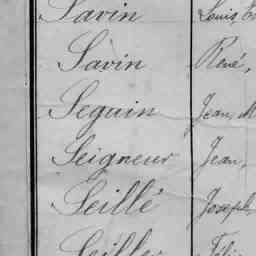 Savin Louis
Savin René,
Seguin Jean, M
Seigneur Jean,
Seillé Joseph
Seiller